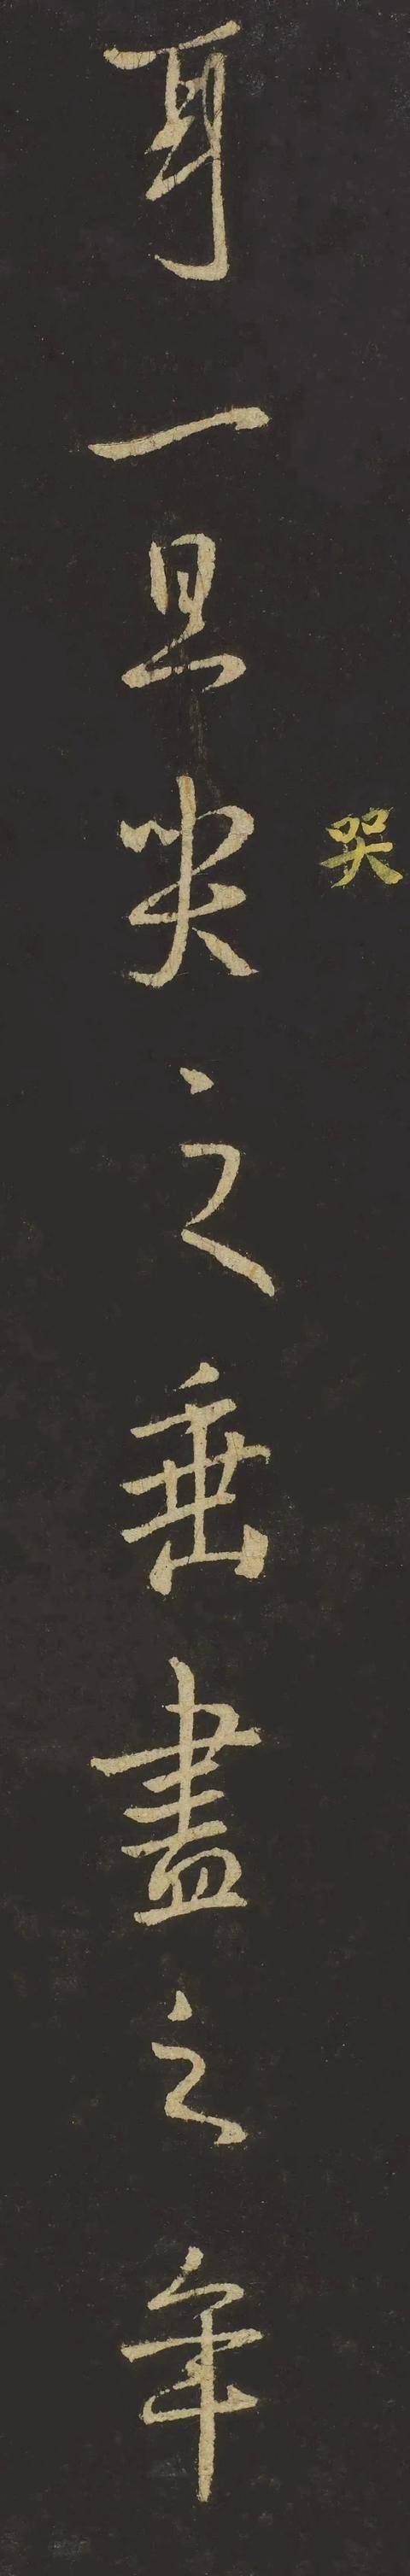 耳一旦哭之垂盡之年
哭